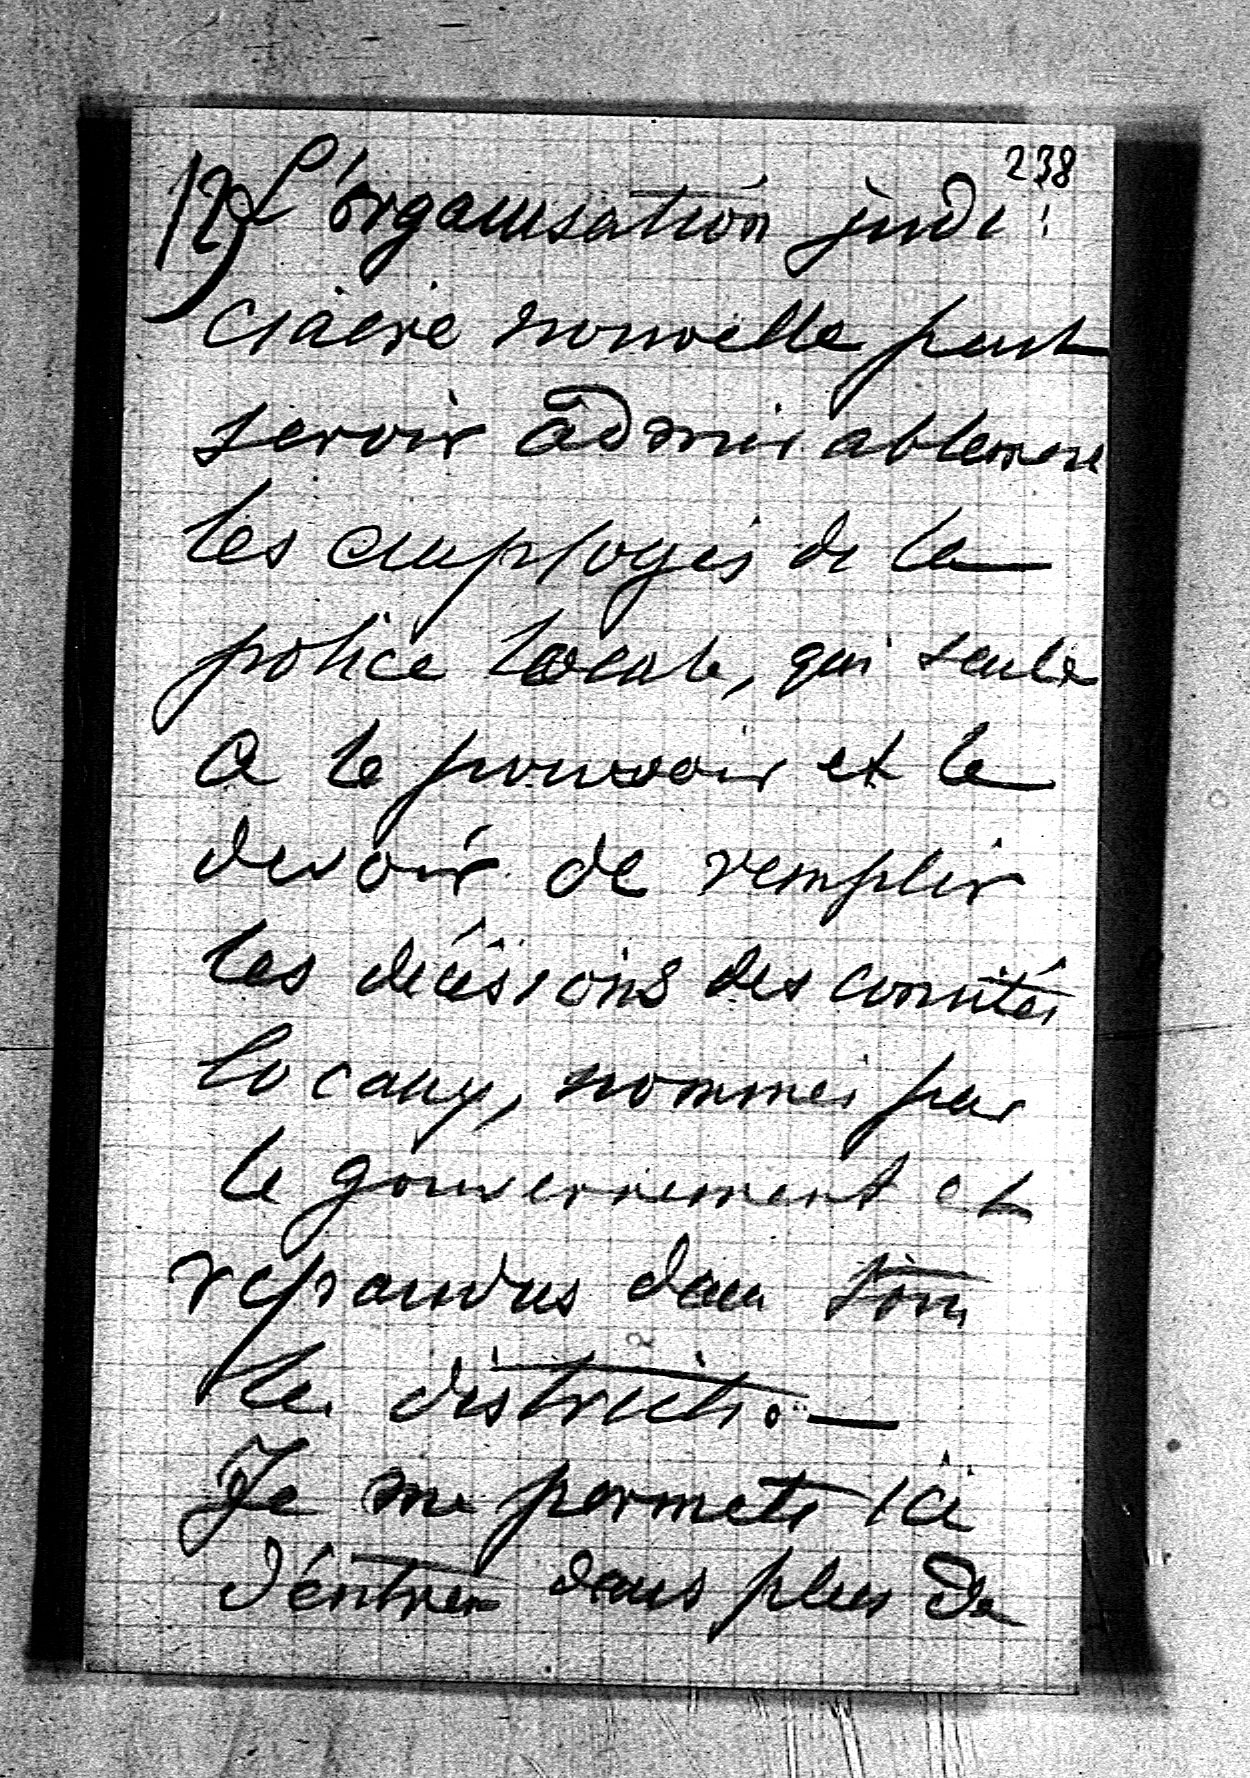 238
12) L'organisation judi-
ciaire nouvelle peut
servir admirablement
les employés de la
police locale, qui seule
a le pouvoir et le
devoir de remplir
les décisions des comités
locaux, nommés par
le gouvernement et
repandus dans tous
les districts. —
Je me permets ici
d'entrer dans plus de